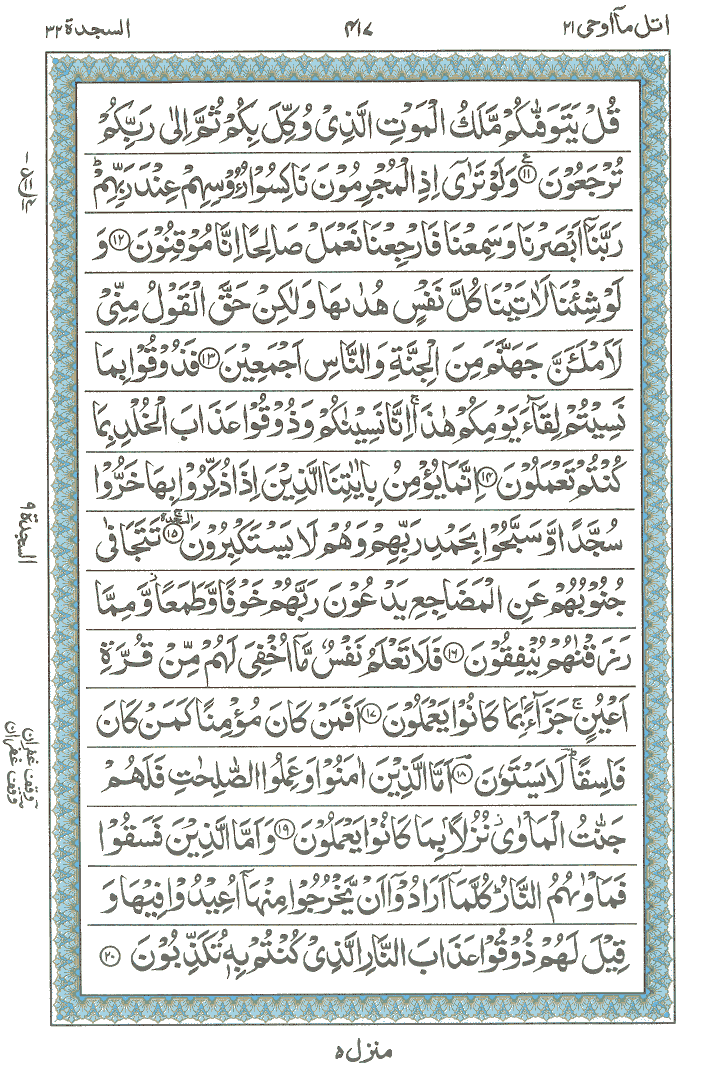 اتل مآ اوحی ۲۱
۴۱۷
السجدة ۳۲
قُلْ يَتَوَفّٰىكُمْ مَّلَكُ الْمَوْتِ الَّذِىْ وُكِّلَ بِكُمْ ثُمَّ اِلٰى رَبِّكُمْ
تُرْجَعُوْنَ ﴿۱۱﴾ وَلَوْ تَرٰٓى اِذِ الْمُجْرِمُوْنَ نَاكِسُوْا رُءُوْسِهِمْ عِنْدَ رَبِّهِمْ ؕ
رَبَّنَآ اَبْصَرْنَا وَسَمِعْنَا فَارْجِعْنَا نَعْمَلْ صَالِحًا اِنَّا مُوْقِنُوْنَ ﴿۱۲﴾ وَ
لَوْ شِئْنَا لَاٰتَيْنَا كُلَّ نَفْسٍ هُدٰىهَا وَلٰكِنْ حَقَّ الْقَوْلُ مِنِّىْ
لَاَمْلَئَنَّ جَهَنَّمَ مِنَ الْجِنَّةِ وَالنَّاسِ اَجْمَعِيْنَ ﴿۱۳﴾ فَذُوْقُوْا بِمَا
نَسِيْتُمْ لِقَآءَ يَوْمِكُمْ هٰذَا ۚ اِنَّا نَسِيْنٰكُمْ وَذُوْقُوْا عَذَابَ الْخُلْدِ بِمَا
كُنْتُمْ تَعْمَلُوْنَ ﴿۱۴﴾ اِنَّمَا يُؤْمِنُ بِاٰيٰتِنَا الَّذِيْنَ اِذَا ذُكِّرُوْا بِهَا خَرُّوْا
سُجَّدًا وَّسَبَّحُوْا بِحَمْدِ رَبِّهِمْ وَهُمْ لَا يَسْتَكْبِرُوْنَ ﴿۱۵﴾ السجدة تَتَجَافٰى
جُنُوْبُهُمْ عَنِ الْمَضَاجِعِ يَدْعُوْنَ رَبَّهُمْ خَوْفًا وَّطَمَعًا ز وَّمِمَّا
رَزَقْنٰهُمْ يُنْفِقُوْنَ ﴿۱۶﴾ فَلَا تَعْلَمُ نَفْسٌ مَّآ اُخْفِىَ لَهُمْ مِّنْ قُرَّةِ
اَعْيُنٍ ۚ جَزَآءًۢ بِمَا كَانُوْا يَعْمَلُوْنَ ﴿۱۷﴾ اَفَمَنْ كَانَ مُؤْمِنًا كَمَنْ كَانَ
فَاسِقًا ؕ لَا يَسْتَوٗنَ ﴿۱۸﴾ اَمَّا الَّذِيْنَ اٰمَنُوْا وَعَمِلُوا الصّٰلِحٰتِ فَلَهُمْ
جَنّٰتُ الْمَاْوٰى ز نُزُلًاۢ بِمَا كَانُوْا يَعْمَلُوْنَ ﴿۱۹﴾ وَاَمَّا الَّذِيْنَ فَسَقُوْا
فَمَاْوٰىهُمُ النَّارُ ؕ كُلَّمَآ اَرَادُوْٓا اَنْ يَّخْرُجُوْا مِنْهَآ اُعِيْدُوْا فِيْهَا وَ
قِيْلَ لَهُمْ ذُوْقُوْا عَذَابَ النَّارِ الَّذِىْ كُنْتُمْ بِهٖ تُكَذِّبُوْنَ ﴿۲۰﴾
السجدة ۹
وقف غفران
وقف غفران
منزل ۵